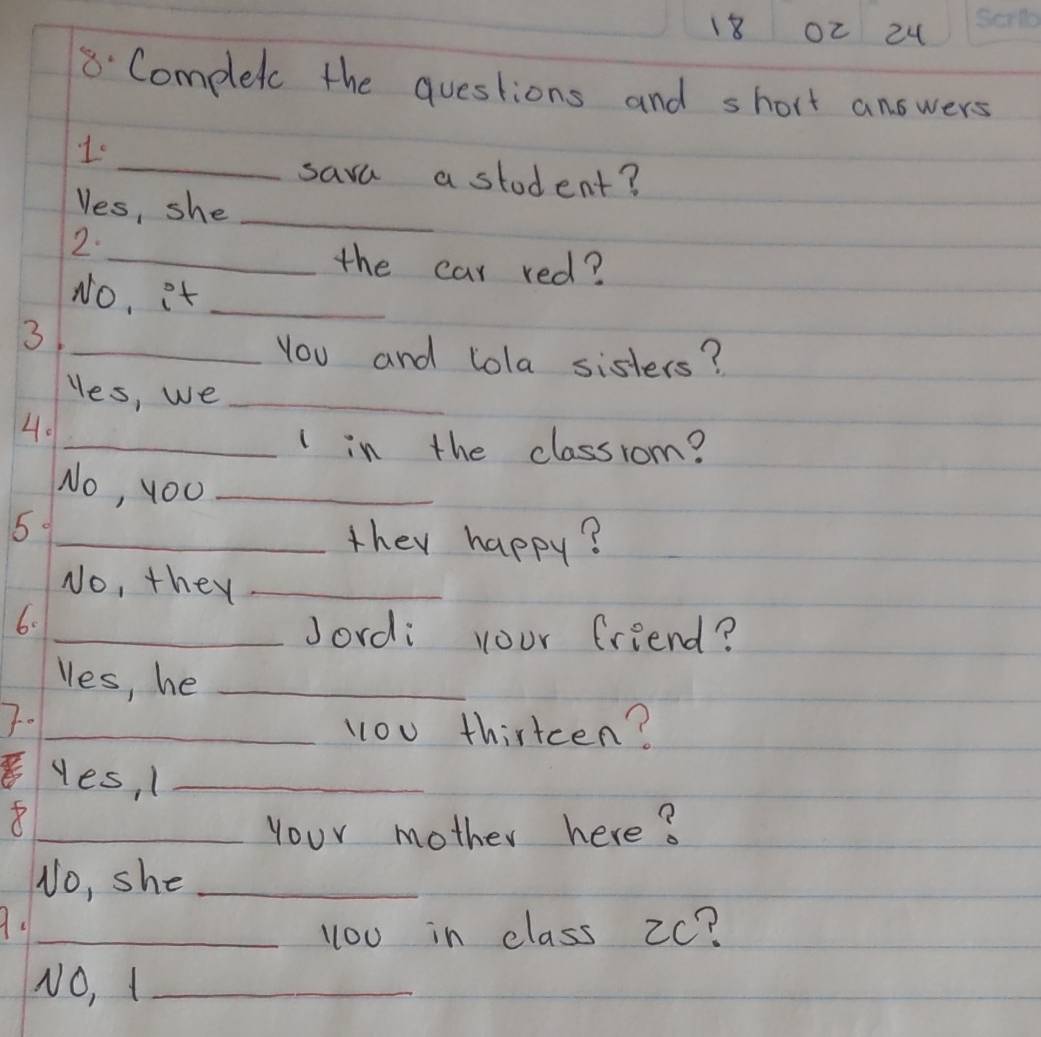 18 02 24 Scrib
8. Complete the questions and short answers
1. ________ sara a student?
Yes, she ________
2. ________ the car red?
No, it ________
3. ________ You and lola sisters?
Yes, we ________
4. ________ I in the classrom?
No, you ________
5. ________ they happy?
No, they ________
6. ________ Jordi your friend?
Yes, he ________
7. ________ you thirteen?
Yes, I ________
8 ________ Your mother here?
No, she ________
9. ________ you in class 2C?
NO, I ________